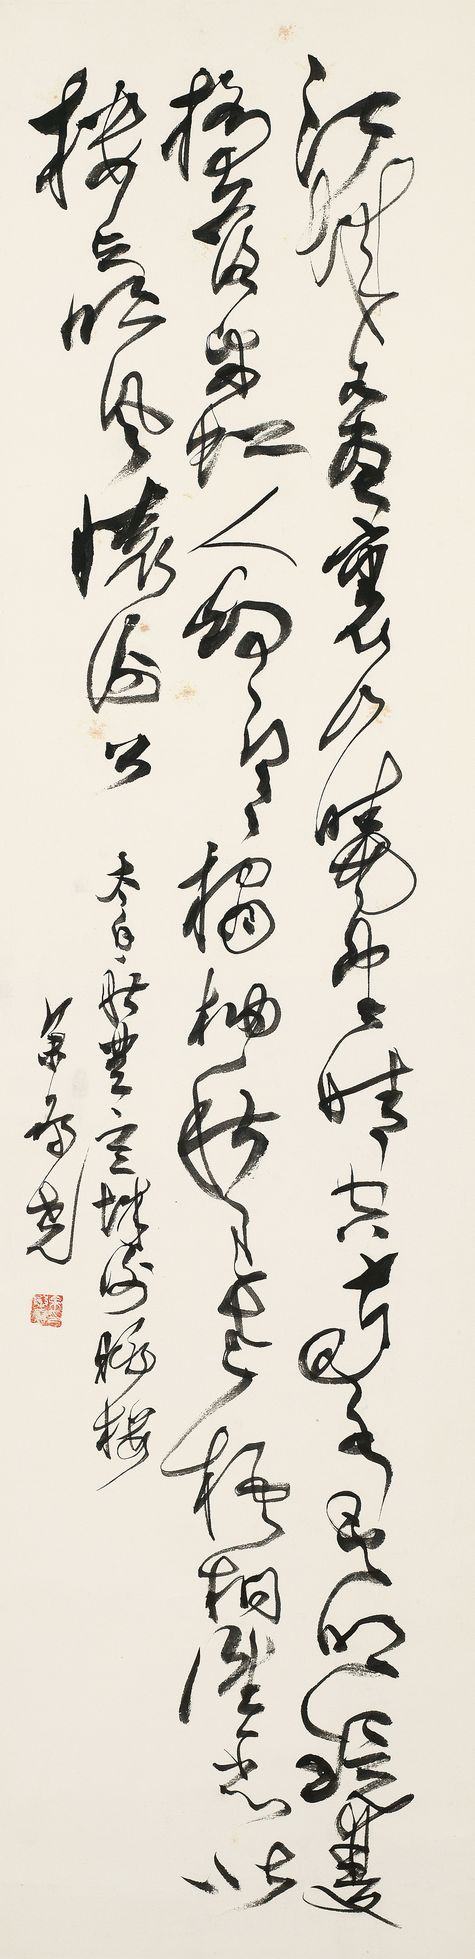 江城如畫裏山曉望晴空兩水夾明鏡雙
橋落彩虹人煙寒橘柚秋色老梧桐誰念北
樓上臨風懷謝公
太白秋登宣城謝朓樓